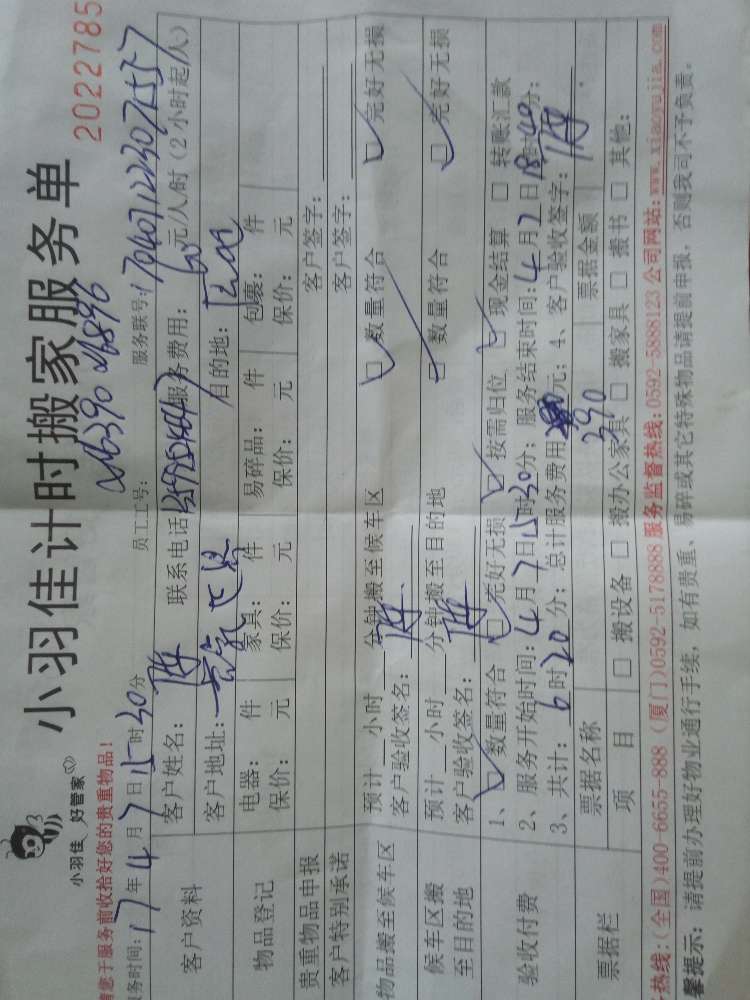 小羽佳计时搬家服务单
2022785
小羽佳 好管家
请您于服务前收拾好您的贵重物品！
员工工号：
服务联号：
服务时间：17年4月7日15时30分
客户资料
客户姓名： 联系电话 服务费用：60元/人/时（2小时起/人）
客户地址： 目的地：
物品登记
电器： 件 家具： 件 易碎品： 件 包裹： 件
保价： 元 保价： 元 保价： 元 保价： 元
贵重物品申报 客户签字：
客户特别承诺 客户签字：
物品搬至候车区
预计 小时 分钟搬至候车区 □ 数量符合 □ 完好无损
客户验收签名：
候车区搬至目的地
预计 小时 分钟搬至目的地 □ 数量符合 □ 完好无损
客户验收签名：
验收付费
1、□ 数量符合 □ 完好无损 □ 按需归位 □ 现金结算 □ 转账汇款
2、服务开始时间：4月7日15时30分；服务结束时间：4月7日18时40分；
3、共计：6时20分；总计服务费用 元；4、客户验收签字：
票据栏
票据名称 390 票据金额
项目 □ 搬设备 □ 搬办公家具 □ 搬家具 □ 搬书 □ 其他：
热线：(全国)400-6655-888 (厦门)0592-5178888 服务监督热线：0592-5888123 公司网站：www.xiaoyujia.com
馨提示：请提前办理好物业通行手续，如有贵重、易碎或其它特殊物品请提前申报，否则我司不予负责。